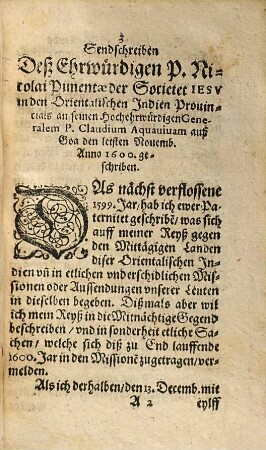 3
Sendschreiben
Deß Ehrwürdigen P. Ni⸗
colai Pimentæ der Societet IESV
in den Orientalischen Indien Prouin⸗
cials an seinen HochehrwürdigenGene⸗
ralem P. Claudium Aquauiuam auß
Goa den letsten Nouemb.
Anno 1600. ge⸗
schriben.
DAs nächst verflossene
1599. Jar/ hab ich ewer Pa⸗
ternitet geschribẽ/ was sich
auff meiner Reyß gegen
den Mittägigen Landen
diser Orientalischen In⸗
dien vñ in etlichen vnderschidlichen Mis⸗
sionen oder Aussendungen vnserer Leuten
in dieselben begeben. Dißmals aber wil
ich mein Reyß in die Mitnächtige Gegend
beschreiben / vnd in sonderheit etliche Sa⸗
chen/ welche sich diß zu End lauffende
1600. Jar in den Missionẽ zugetragen/ ver⸗
melden.
Als ich derhalben/ den 13. Decemb. mit
A 2 eylff